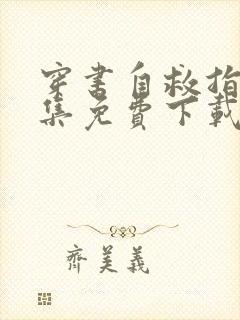 穿书自救指
集免費下載
齊美義